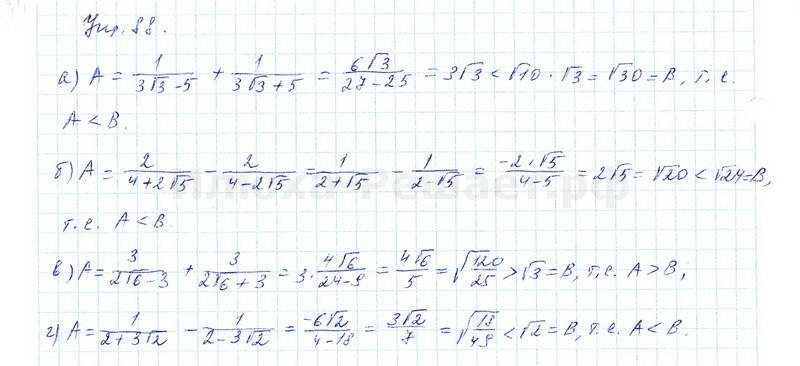 Упр. 88.
а) A = 1/(3√3 - 5) + 1/(3√3 + 5) = 6√3/(27 - 25) = 3√3 < √10 · √3 = √30 = B, т.е.
A < B.
б) A = 2/(4 + 2√5) - 2/(4 - 2√5) = 1/(2 + √5) - 1/(2 - √5) = -2·√5/(4 - 5) = 2√5 = √20 < √24 = B,
т.е. A < B.
в) A = 3/(2√6 - 3) + 3/(2√6 + 3) = 3 · 4√6/(24 - 9) = 4√6/5 = √(120/25) > √3 = B, т.е. A > B,
г) A = 1/(2 + 3√2) - 1/(2 - 3√2) = -6√2/(4 - 18) = 3√2/7 = √(18/49) < √2 = B, т.е. A < B.